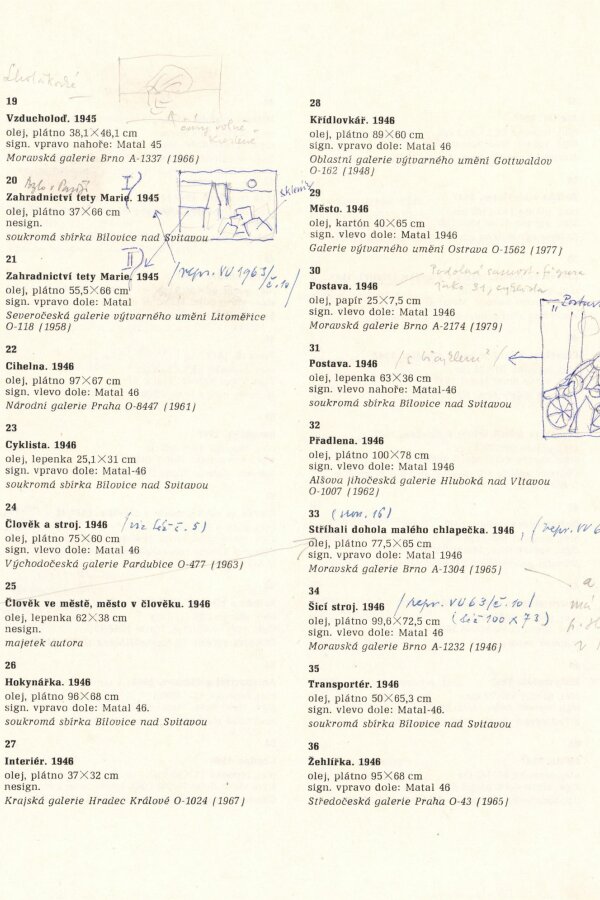 19
Vzducholoď. 1945
olej, plátno 38,1×46,1 cm
sign. vpravo nahoře: Matal 45
Moravská galerie Brno A-1337 (1966)
20
I)
Zahradnictví tety Marie. 1945
olej, plátno 37×66 cm
nesign.
soukromá sbírka Bílovice nad Svitavou
21
II)
Zahradnictví tety Marie. 1945
olej, plátno 55,5×66 cm
sign. vpravo dole: Matal
Severočeská galerie výtvarného umění Litoměřice
O-118 (1958)
/repr. VU 1963/
č. 10/
22
Cihelna. 1946
olej, plátno 97×67 cm
sign. vlevo dole: Matal 46
Národní galerie Praha O-8447 (1961)
23
Cyklista. 1946
olej, lepenka 25,1×31 cm
sign. vpravo dole: Matal-46
soukromá sbírka Bílovice nad Svitavou
24
Člověk a stroj. 1946 (viz též č. 5)
olej, plátno 75×60 cm
sign. vlevo dole: Matal 46
Východočeská galerie Pardubice O-477 (1963)
25
Člověk ve městě, město v člověku. 1946
olej, lepenka 62×38 cm
nesign.
majetek autora
26
Hokynářka. 1946
olej, plátno 96×68 cm
sign. vpravo dole: Matal 46.
soukromá sbírka Bílovice nad Svitavou
27
Interiér. 1946
olej, plátno 37×32 cm
nesign.
Krajská galerie Hradec Králové O-1024 (1967)
28
Křídlovkář. 1946
olej, plátno 89×60 cm
sign. vpravo dole: Matal 46
Oblastní galerie výtvarného umění Gottwaldov
O-162 (1948)
29
Město. 1946
olej, kartón 40×65 cm
sign. vlevo dole: Matal 1946
Galerie výtvarného umění Ostrava O-1562 (1977)
30
Postava. 1946
olej, papír 25×7,5 cm
sign. vlevo dole: Matal 1946
Moravská galerie Brno A-2174 (1979)
31
Postava. 1946
olej, lepenka 63×36 cm
sign. vlevo nahoře: Matal-46
soukromá sbírka Bílovice nad Svitavou
32
Přadlena. 1946
olej, plátno 100×78 cm
sign. vlevo dole: Matal 1946
Alšova jihočeská galerie Hluboká nad Vltavou
O-1007 (1962)
33
Stříhali dohola malého chlapečka. 1946
olej, plátno 77,5×65 cm
sign. vpravo dole: Matal 1946
Moravská galerie Brno A-1304 (1965)
34
Šicí stroj. 1946 /repr. VU 63/č. 10/
olej, plátno 99,6×72,5 cm (též 100×73)
sign. vlevo dole: Matal 46
Moravská galerie Brno A-1232 (1946)
35
Transportér. 1946
olej, plátno 50×65,3 cm
sign. vlevo dole: Matal-46.
soukromá sbírka Bílovice nad Svitavou
36
Žehlířka. 1946
olej, plátno 95×68 cm
sign. vpravo dole: Matal 46
Středočeská galerie Praha O-43 (1965)